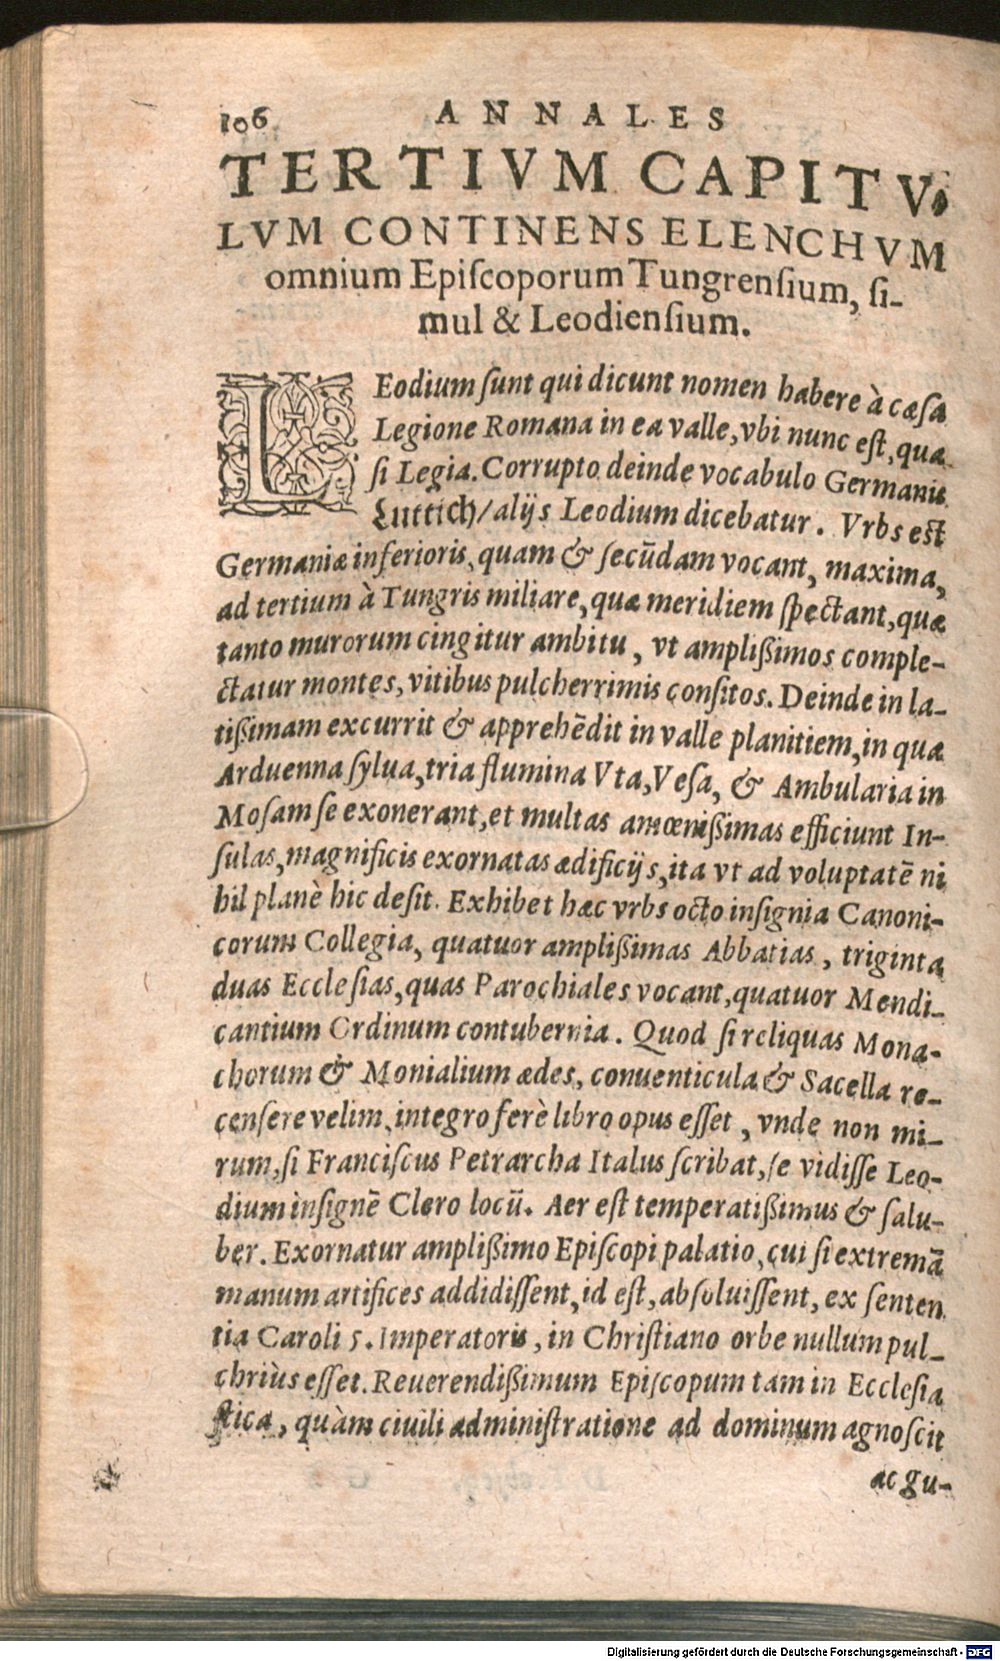 106 ANNALES
TERTIVM CAPITV-
LVM CONTINENS ELENCHVM
omnium Epiſcoporum Tungrenſium, ſi-
mul & Leodienſium.
LEodium ſunt qui dicunt nomen habere à cæſa
Legione Romana in ea valle, vbi nunc eſt, qua
ſi Legia. Corrupto deinde vocabulo Germanis
Luttich/ alijs Leodium dicebatur. Vrbs eſt
Germaniæ inferioris, quam & ſecūdam vocant, maxima,
ad tertium à Tungris miliare, quæ meridiem ſpectant, quæ
tanto murorum cingitur ambitu, vt amplißimos comple-
ctatur montes, vitibus pulcherrimis conſitos. Deinde in la-
tißimam excurrit & apprehēdit in valle planitiem, in qua
Arduenna ſylua, tria flumina Vta, Veſa, & Ambularia in
Moſam ſe exonerant, et multas amœnißimas efficiunt In-
ſulas, magnificis exornatas ædificijs, ita vt ad voluptatē ni
hil planè hic deſit. Exhibet hæc vrbs octo inſignia Canoni-
corum Collegia, quatuor amplißimas Abbatias, triginta
duas Eccleſias, quas Parochiales vocant, quatuor Mendi-
cantium Ordinum contubernia. Quod ſi reliquas Mona-
chorum & Monialium ædes, conuenticula & Sacella re-
cenſere velim, integro ferè libro opus eſſet, vnde non mi-
rum, ſi Franciſcus Petrarcha Italus ſcribat, ſe vidiſſe Leo-
dium inſignē Clero locū. Aer eſt temperatißimus & ſalu-
ber. Exornatur amplißimo Epiſcopi palatio, cui ſi extremā
manum artifices addidiſſent, id eſt, abſoluiſſent, ex ſenten
tia Caroli 5. Imperatoris, in Chriſtiano orbe nullum pul-
chriùs eſſet. Reuerendißimum Epiſcopum tam in Eccleſia
ſtica, quàm ciuili adminiſtratione ad dominum agnoſcit
ac gu-
Digitalisierung gefördert durch die Deutsche Forschungsgemeinschaft - DFG